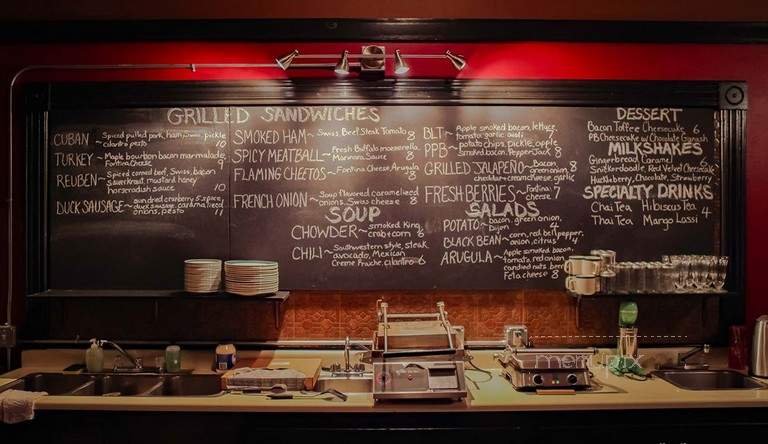 GRILLED SANDWICHES
CUBAN ~ Spiced pulled pork, ham, Swiss, pickle
~ cilantro pesto 10
TURKEY ~ Maple bourbon bacon marmalade,
Fontina Cheese 9
REUBEN ~ Spiced corned beef, Swiss, bacon
sauerkraut, mustard honey
horseradish sauce 10
DUCK SAUSAGE ~ cranberry 5 spice,
duck sausage, caramelized
onions, pesto 11
SMOKED HAM ~ Swiss, Beef Steak Tomato 8
SPICY MEATBALL ~ Fresh Buffalo mozzarella
Marinara Sauce 8
FLAMING CHEETOS ~ Fontina Cheese, Arugula
8
FRENCH ONION ~ Soup flavored caramelized
onions, Swiss cheese 8
BLT ~ Apple smoked bacon, lettuce,
tomato, garlic aioli 7
PPB ~ potato chips, pickle, apple
smoked bacon, Pepper Jack 8
GRILLED JALAPEÑO ~ Bacon,
greenonion, 8
cheddar + creamcheese, garlic
FRESH BERRIES ~ Fontina
cheese 7
SOUP
CHOWDER ~ smoked King
crab + corn 8
CHILI ~ Southwestern style, steak
avocado, Mexican
Creme Fraiche, cilantro 6
SALADS
POTATO ~ bacon, green onion,
Dijon 4
BLACK BEAN ~ corn, red bell pepper,
onion, citrus 4
ARUGULA ~ Apple smoked bacon,
tomato, red onion
candied nuts
Feta cheese 8
DESSERT
Bacon Toffee Cheesecake 6
PB Cheesecake w/ Chocolate Ganash
MILKSHAKES
Gingerbread Caramel 6
Snickerdoodle, Red Velvet Cheesecake
Huckleberry, Chocolate, Strawberry
SPECIALTY DRINKS
Chai Tea Hibiscus Tea 4
Thai Tea Mango Lassi
menupix